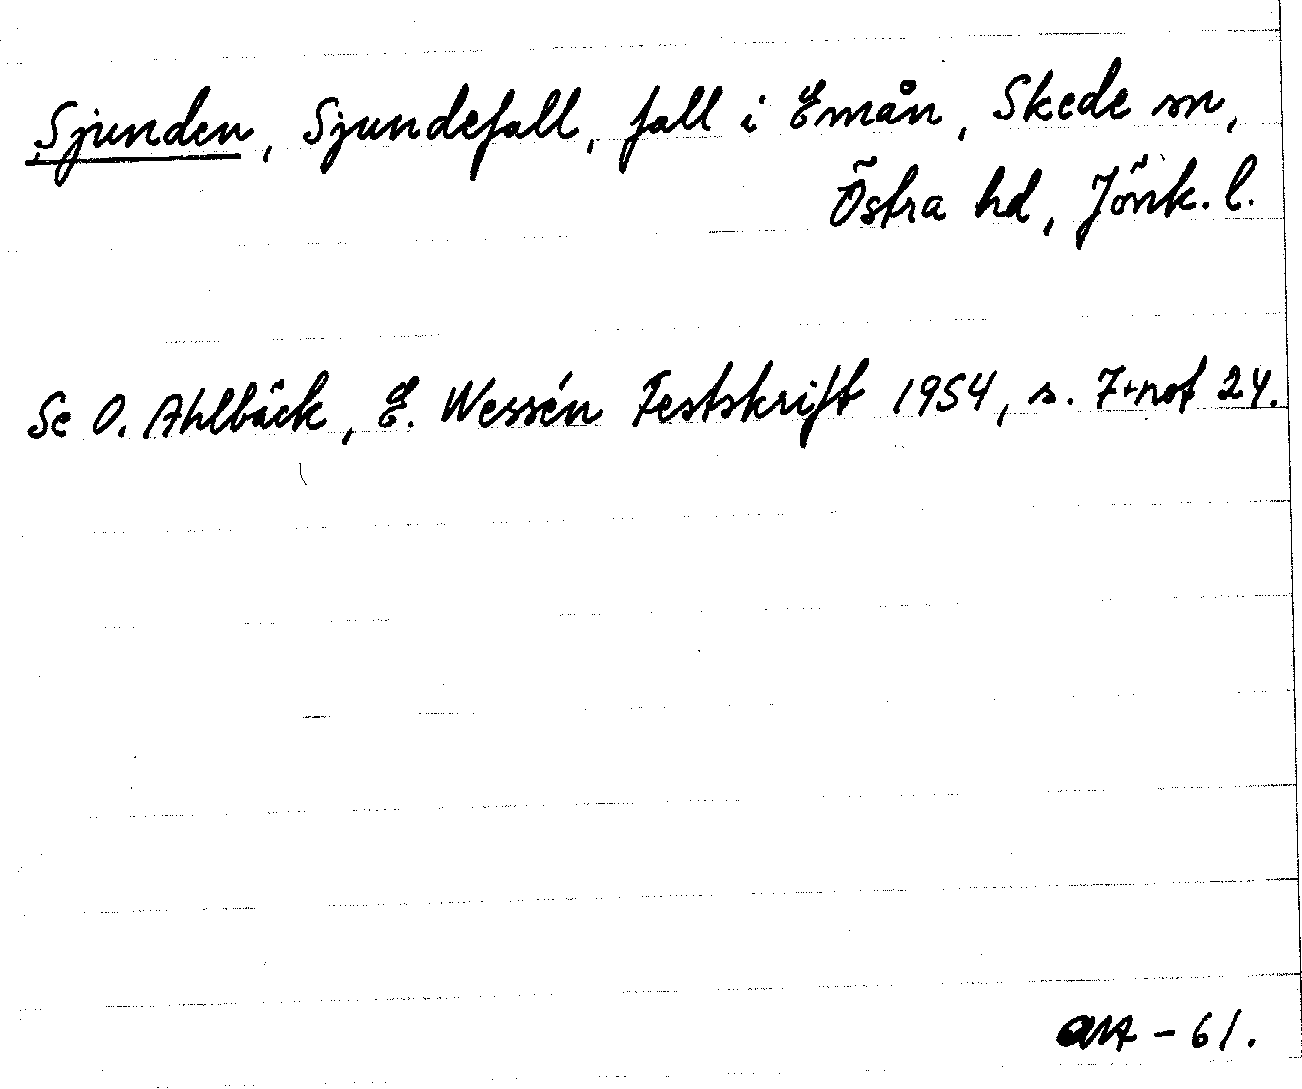 Sjunden, Sjundefall, fall i Emån, Skede sn,
Östra hd, Jönk. l.
Se O. Ahlbäck, E. Wessén Festskrift 1954, s. 7+not 24.
-61.